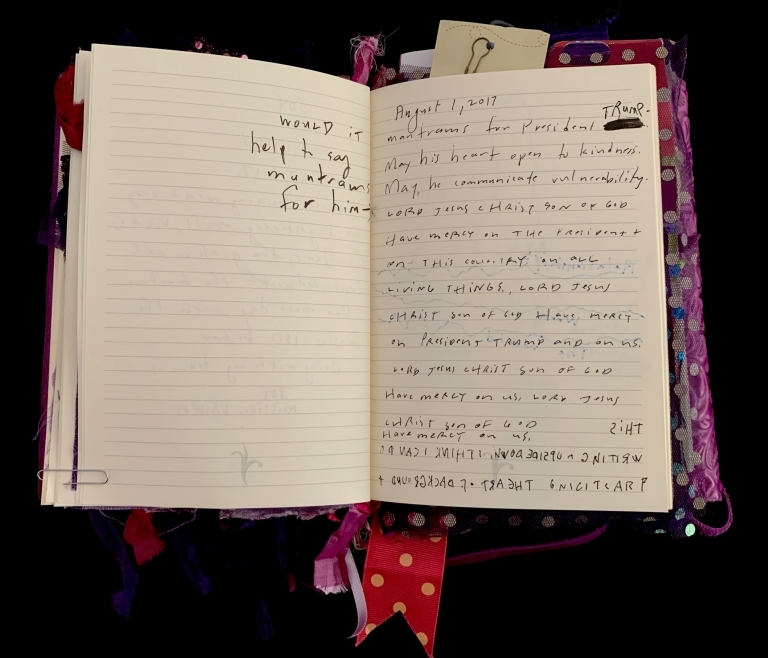 would it
help to say
mantrams
for him—
August 1, 2017
TRUMP.
mantrams for President
May his heart open to kindness.
May he communicate vulnerability.
LORD JESUS CHRIST SON OF GOD
Have mercy on THE President +
on THIS country on ALL
LIVING THINGS, LORD JESUS
CHRIST son of GOD Have mercy
on President TRUMP and on us.
LORD JESUS CHRIST son OF GOD
Have mercy on us, LORD JESUS
CHRIST son of GOD
Have mercy on us.
THIS
WRITING UPSIDEDOWN I THINK I CAN DO
PRACTICING THE ART of +